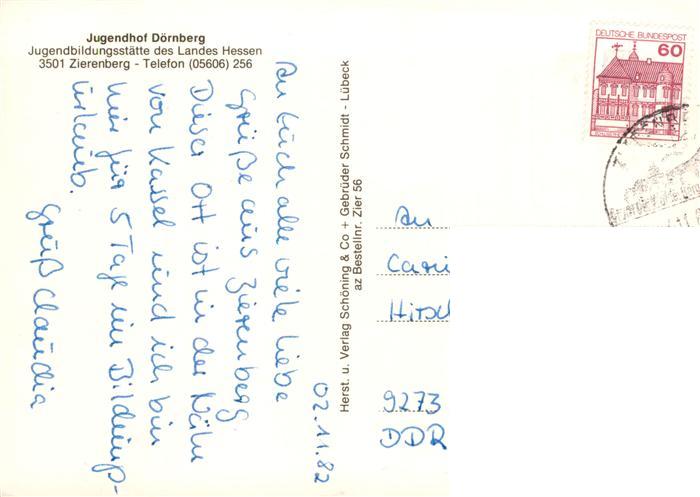 Jugendhof Dörnberg
Jugendbildungsstätte des Landes Hessen
3501 Zierenberg - Telefon (05606) 256
02.11.82
An Euch alle viele liebe
Grüße aus Zierenberg
Dieser Ort ist in der Nähe
von Kassel und ich bin
hier für 5 Tage im Bildungs-
urlaub.
Gruß Claudia
Herst. u. Verlag Schöning & Co + Gebrüder Schmidt - Lübeck
az Bestellnr. Zier 56
DEUTSCHE BUNDESPOST
60
An
Cari
Hirsc
9273
DDR